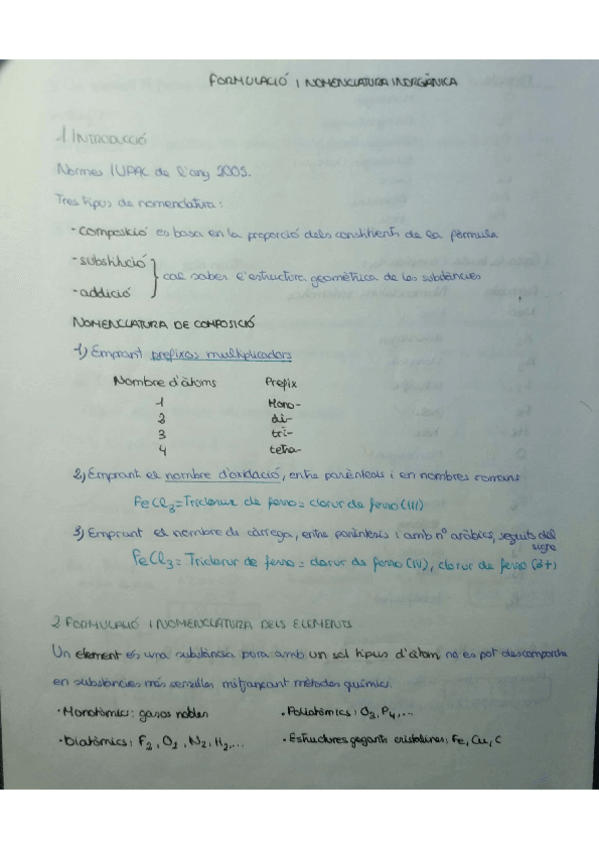 FORMULACIÓ I NOMENCLATURA INORGÀNICA
1 INTRODUCCIÓ
Normes IUPAC de l'any 2005.
Tres tipus de nomenclatura:
· Composició es basa en la proporció dels constituents de la fórmula
· substitució
cal saber l'estructura geomètrica de les substàncies
· addició
NOMENCLATURA DE COMPOSICIÓ
1) Emprant prefixos multiplicadors
Nombre d'àtoms Prefix
1 Mono-
2 di-
3 tri-
4 tetra-
2) Emprant el nombre d'oxidació, entre parèntesis i en nombres romans
FeCl3 = Triclorur de ferro = clorur de ferro (III)
3) Emprant el nombre de càrrega, entre parèntesis i amb nº aràbics, seguits del
signe
FeCl3 = Triclorur de ferro = clorur de ferro (IV), clorur de ferro (3+)
2 FORMULACIÓ I NOMENCLATURA DELS ELEMENTS
Un element és una substància pura amb un sol tipus d'àtom, no es pot descompondre
en substàncies més senzilles mitjançant mètodes químics.
· Monoatòmics: gasos nobles · Poliatòmics: O3, P4,...
· Diatòmics: F2, O2, N2, H2,... · Estructures gegants cristal·lines: Fe, Cu, C